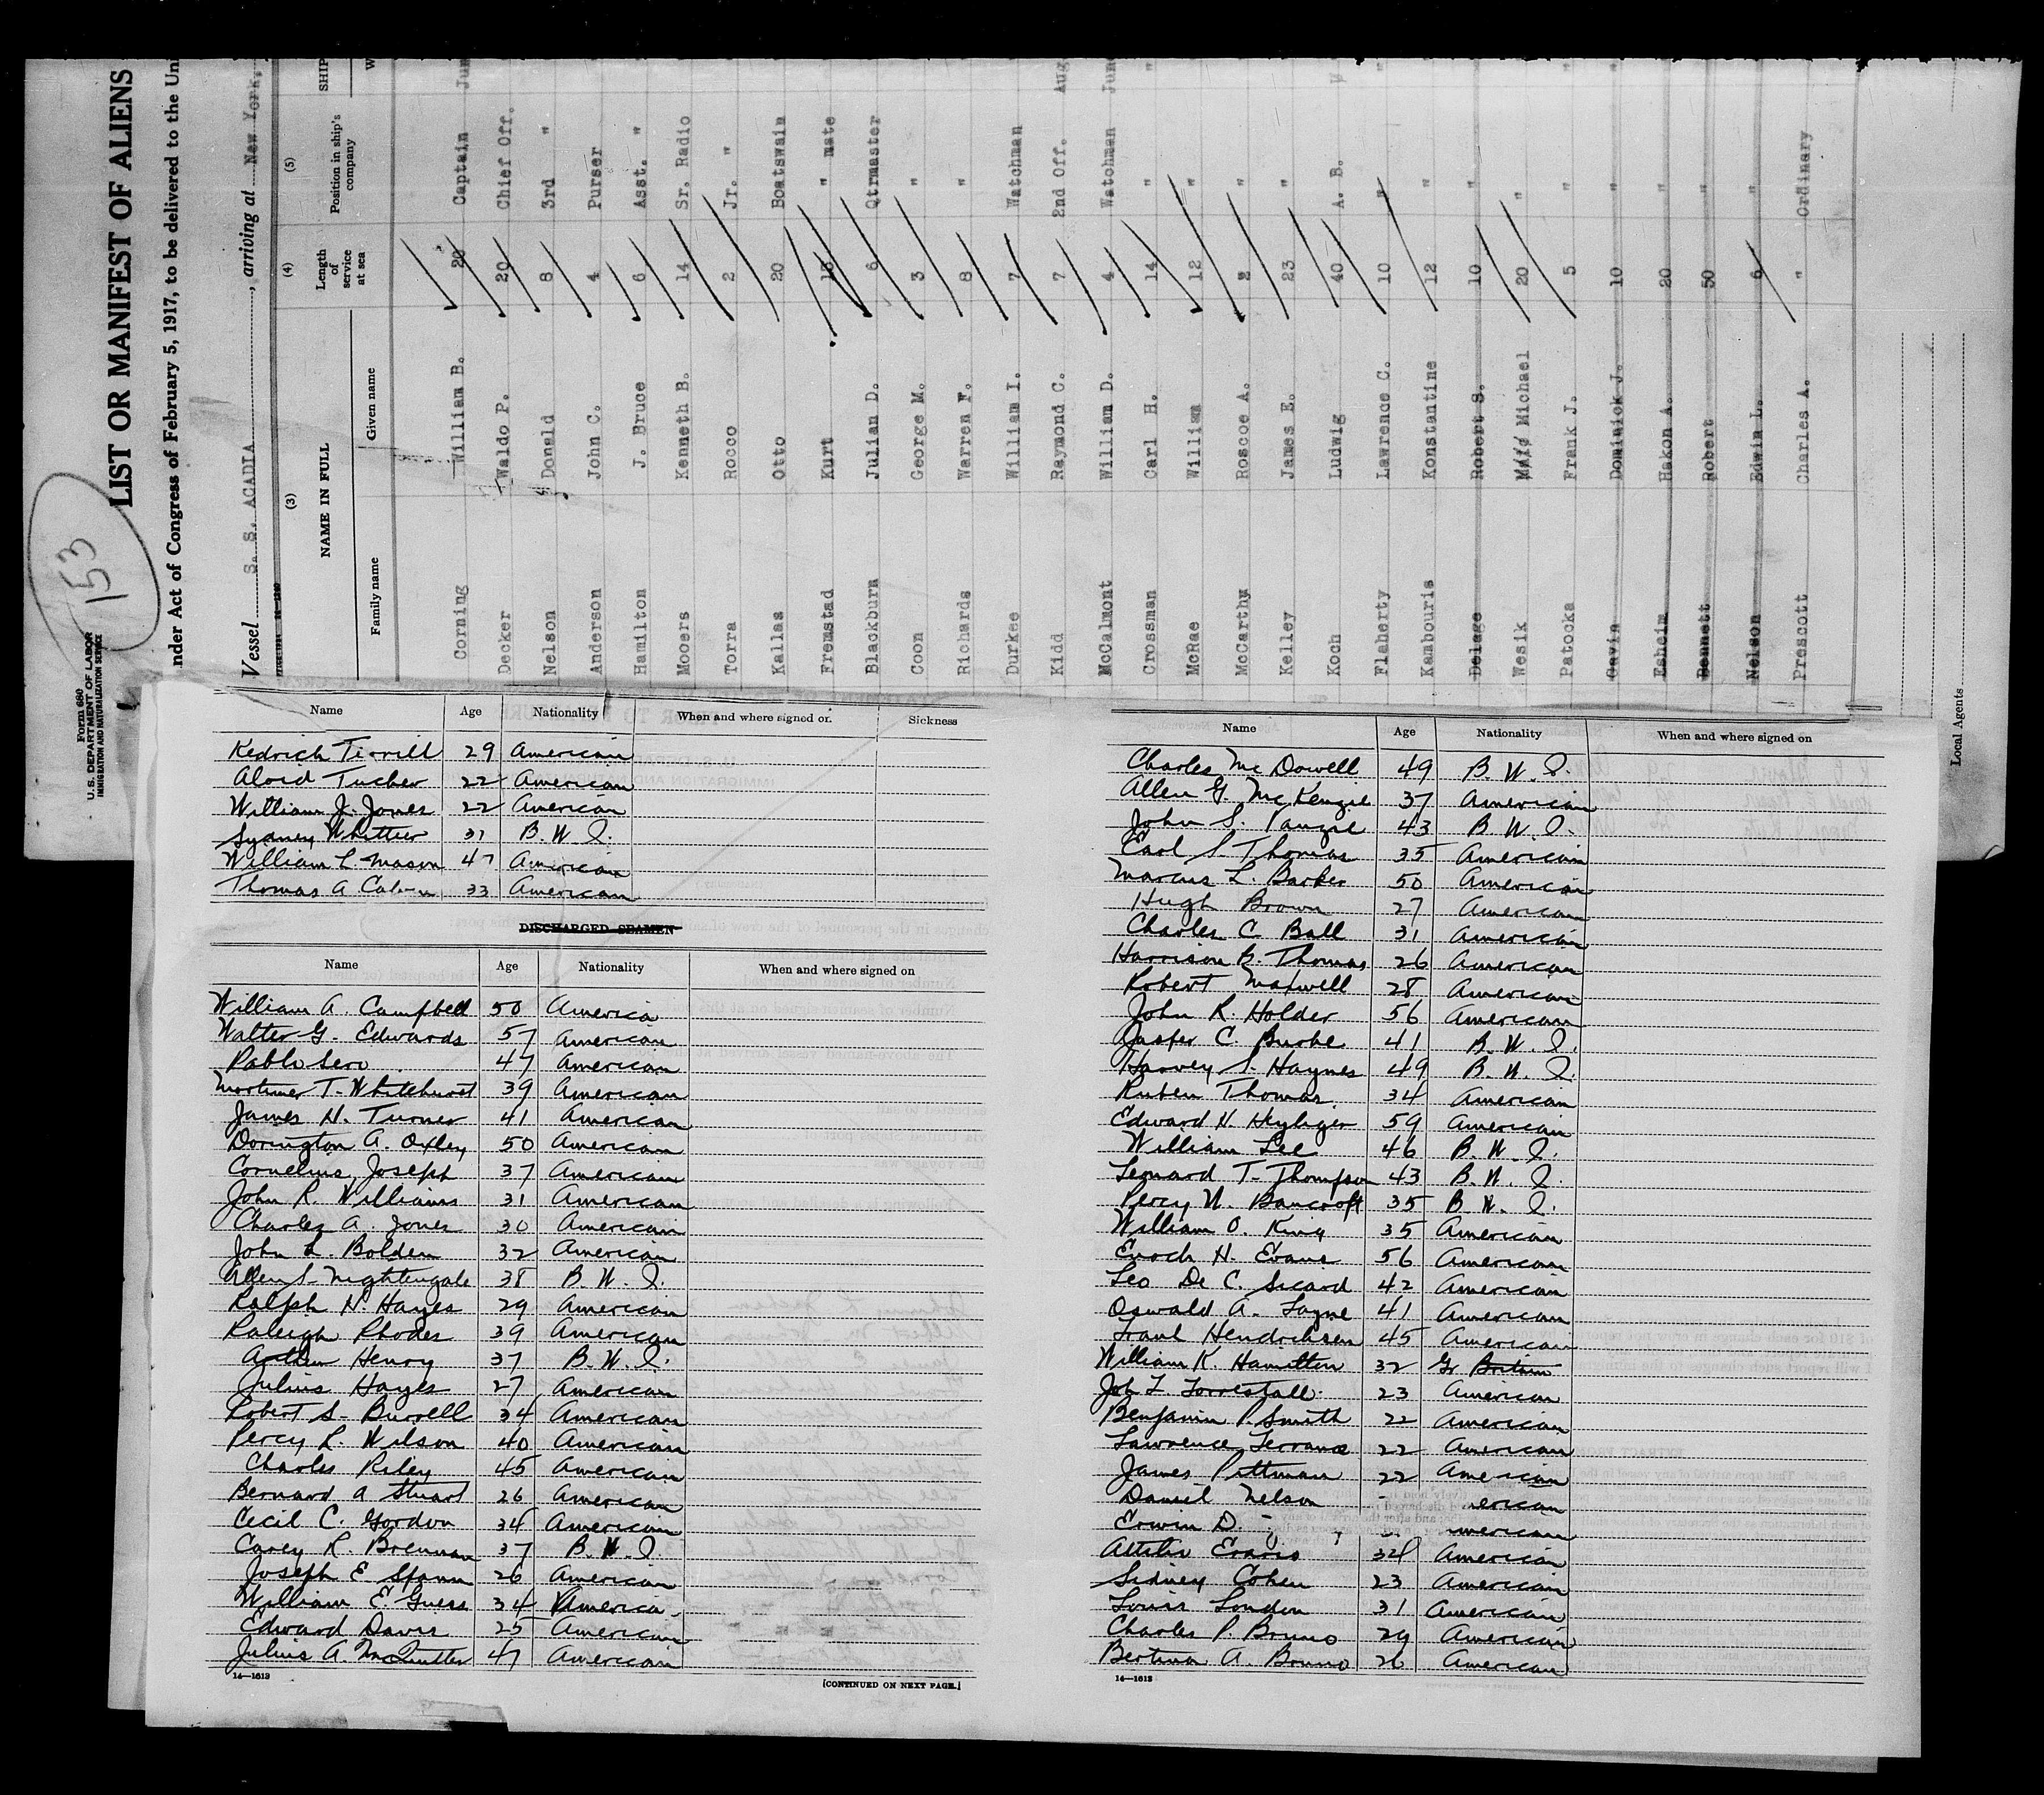 Form 680
U.S. DEPARTMENT OF LABOR
IMMIGRATION AND NATURALIZATION SERVICE
153
LIST OR MANIFEST OF ALIENS
nder Act of Congress of February 5, 1917, to be delivered to the Uni
Vessel S. S. ACADIA, arriving at New York,
(3) (4) (5)
NAME IN FULL Length of service at sea Position in ship's company SHIP
Family name Given name W
Corning William B. 20 Captain Jun
Decker Waldo P. 20 Chief Off.
Nelson Donald 8 3rd "
Anderson John C. 4 Purser
Hamilton J. Bruce 6 Asst. "
Mooers Kenneth B. 14 Sr. Radio
Torra Rocco 2 Jr. "
Kallas Otto 20 Boatswain
Fremstad Kurt " mate
Blackburn Julian D. 6 Qtrmaster
Coon George M. 3 "
Richards Warren F. 8 "
Durkee William I. 7 Watchman
Kidd Raymond C. 7 2nd Off. Aug
McCalmont William D. 4 Watchman June
Crossman Carl H. 14 " "
McRae William 12 "
McCarthy Roscoe A. 2 "
Kelley James E. 23 "
Koch Ludwig 40 A. B.
Flaherty Lawrence C. 10 " "
Kambouris Konstantine 12 " "
Delage Robert S. 10 "
Wesik Michael 20 "
Patocka Frank J. 5 " "
Gavin Dominick J. 10 " "
Esheim Hakon A. 20 "
Bennett Robert 50 "
Nelson Edwin L. 6 "
Prescott Charles A. " Ordinary
Local Agents
Name Age Nationality When and where signed on Sickness
Kedrich Tirrill 29 American
Aloid Tucker 22 American
William J. Jones 22 American
Sydney Whittier 31 B. W. I.
William L. Mason 47 American
Thomas A 33 American
DISCHARGED SEAMEN
Name Age Nationality When and where signed on
William A. Campbell 50 America
Walter G. Edwards 57 American
Pablo Sero 47 American
Mortimer T. Whitehurst 39 American
James H. Turner 41 American
Dorington A. Oxley 50 American
Cornelius Joseph 37 American
John R. Williams 31 American
Charles A. Jones 30 American
John L. Bolden 32 American
Allen S. Nightengale 38 B. W. I.
Ralph H. Hayes 29 American
Raleigh Rhodes 39 American
Arthur Henry 37 B. W. I.
Julius Hayes 27 American
Robert S. Burrell 34 American
Percy L. Wilson 40 American
Charles Riley 45 American
Bernard A Stuart 26 American
Cecil C. Gordon 34 American
Carey R. Brennan 37 B. W. I.
Joseph E Spann 26 American
William E Guess 34 America
Edward Davis 25 American
Julius A McQuitter 47 American
14—1613 [CONTINUED ON NEXT PAGE.]
Name Age Nationality When and where signed on
Charles McDowell 49 B. W. I.
Allen G. McKenzie 37 American
John S. Vanzie 43 B. W. I.
Earl S. Thomas 35 American
Marcus L. Barker 50 American
Hugh Brown 27 American
Charles C. Ball 31 American
Harrison B. Thomas 26 American
Robert Maxwell 28 American
John R. Holder 56 American
Jasper C. Burke 41 B. W. I.
Harvey S. Haynes 49 B. W. I.
Ruben Thomas 34 American
Edward H. Heyliger 59 American
William Lee 46 B. W. I.
Leonard T. Thompson 43 B. W. I.
Percy N. Bancroft 35 B. W. I.
William O. King 35 American
Enoch H. Evans 56 American
Leo De C. Sicard 42 American
Oswald A. Layne 41 American
Frank Hendricksen 45 American
William K. Hamilton 32 Gr Britian
Joh L Forrestall 23 American
Benjamin P. Smith 22 American
Lawrence Terrance 22 American
James Pittman 22 American
Daniel Nelson erican
Erwin D. merican
Attilio Evaris 34 American
Sidney Cohen 23 American
Louis London 31 American
Charles P. Bruno 29 American
Bertina A. Bruno 26 American
14—1613